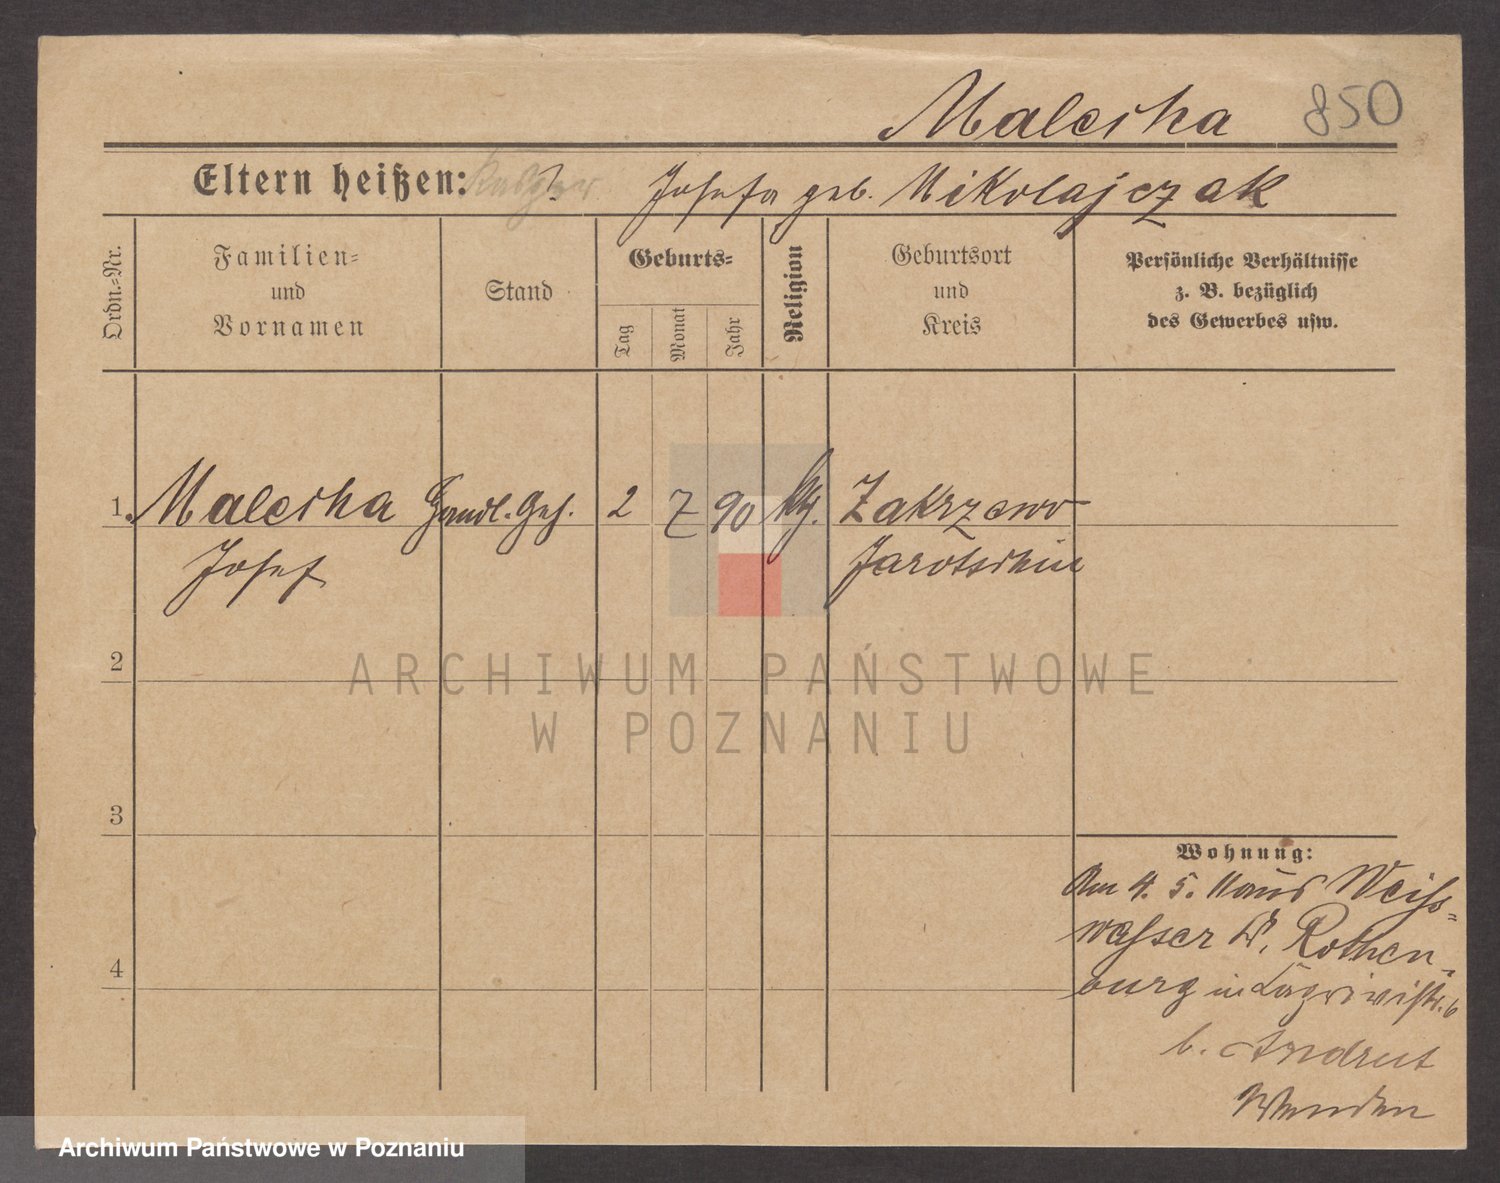 Maleska 850
Eltern heißen: Josefa geb. Mikolajczak
Ordn.-Nr.
Familien-
und
Vornamen
Stand
Geburts-
Tag
Monat
Jahr
Religion
Geburtsort
und
Kreis
Persönliche Verhältnisse
z. B. bezüglich
des Gewerbes usw.
1. Maleska Handl. Geh. 2 7 90 Zakrzewo
Josef Jarotschin
2
ARCHIWUM PAŃSTWOWE
W POZNANIU
3
Wohnung:
Am 4. 5. Weiss-
wasser Kr. Rothen-
burg in
b.
4
Archiwum Państwowe w Poznaniu